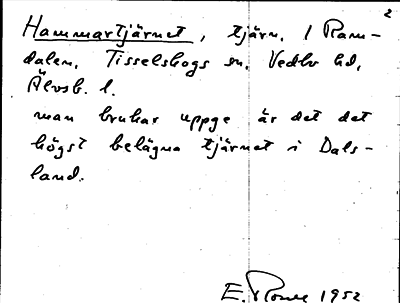 2
Hammartjärnet, tjärn, i Ram-
dalen, Tisselskogs sn, Vedbo hd,
Älvsb. l.
man brukar uppge är det det
högst belägna tjärnet i Dals-
land.
E. 1952